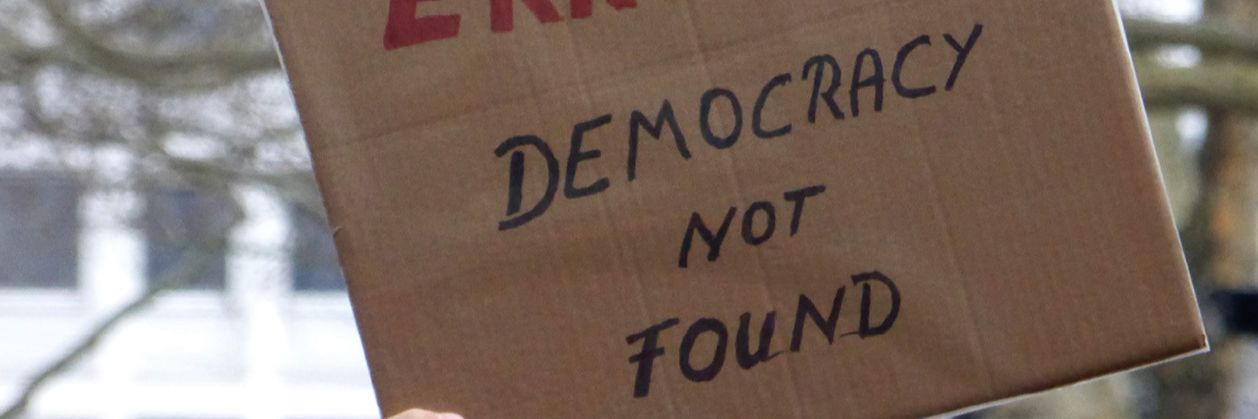 DEMOCRACY
NOT
FOUND